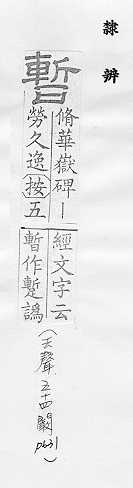 隸辨
暫
脩華嶽碑｜
勞久逸(按)五
經文字云
暫作蹔譌
(去聲五十四闞 p631)